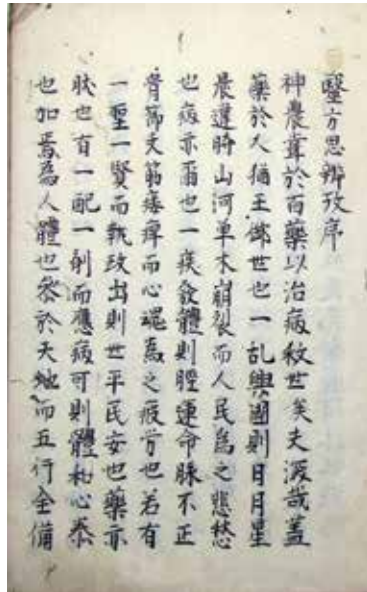 醫方思辨攷序
神農嘗於百藥以治病救世矣夫深哉蓋
藥於人猶王佛世也一乱興國則日月星
晨違時山河草木崩裂而人民為之悲愁
也病亦爾也一疾發體則脛運命脉不正
骨節支筋痿痺而心魂為之疲労也若有
一聖一賢而執政出則世平民安也藥亦
肰也百一配一剤而應病可則體和心泰
也加焉為人體也參於天地而五行全備